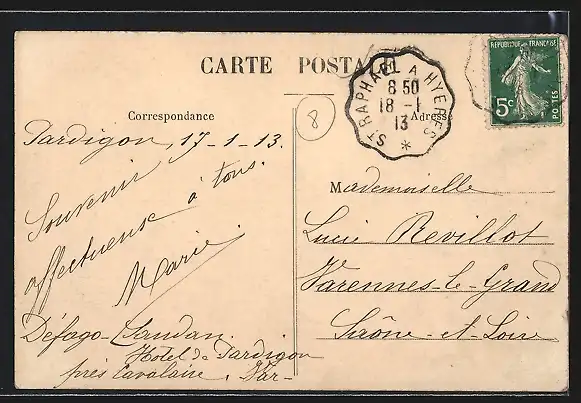 CARTE POSTALE
Correspondance
Pardigon, 17-1-13.
Souvenir
affectueuse à tous.
Marie.
Défago-Claudan.
Hotel de Pardigon
près Cavalaire, Var-
8
Adresse
Mademoiselle
Lucie Revillot
Varennes-le-Grand
Saône-et-Loire
ST RAPHAEL A HYERES *
8 50
18 -1
13
REPUBLIQUE FRANÇAISE
5c
POSTES